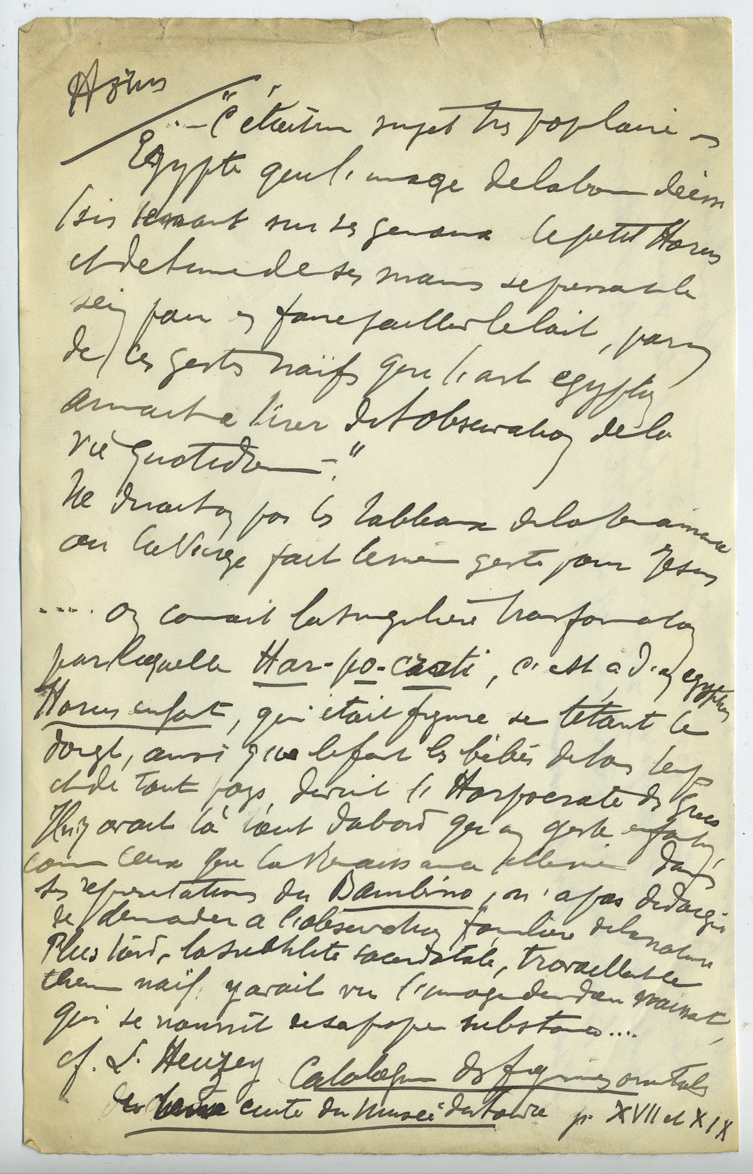 Horus
... "C'était un sujet très populaire en
Egypte que l'image de la bonne déesse
Isis tenant sur ses genoux le petit Horus
et de l'une de ses mains se pressant le
sein pour en faire jaillir le lait, par un
de ces gestes naïfs que l'art égyptien
aimait à tirer de l'observation de la
vie quotidienne –."
Ne dirait on pas les tableaux de la Renaissance
où la Vierge fait le même geste pour Jésus
.... on connait la singulière transformation
par laquelle Har-po-crati, c'est à d. en égyptien
Horus enfant, qui était figuré se tétant le
doigt, ainsi que le font les bébés de tous temps
et de tout pays, devint l'Harpocrate des Grecs
Il n'y avait là tout d'abord qu'un geste enfantin,
comme ceux que la Renaissance elle même dans
ses représentations du Bambino, n'a pas dédaigné
de demander à l'observation familière de la nature
Plus tard, la subtilité sacerdotale, travaillant ce
thème naïf y avait vu l'image du dieu naissant,
qui se nourrit de sa propre substance....
cf. L. Heuzey Catalogue des figurines orientales
de terre cuite du Musée du Louvre p. XVII et XIX